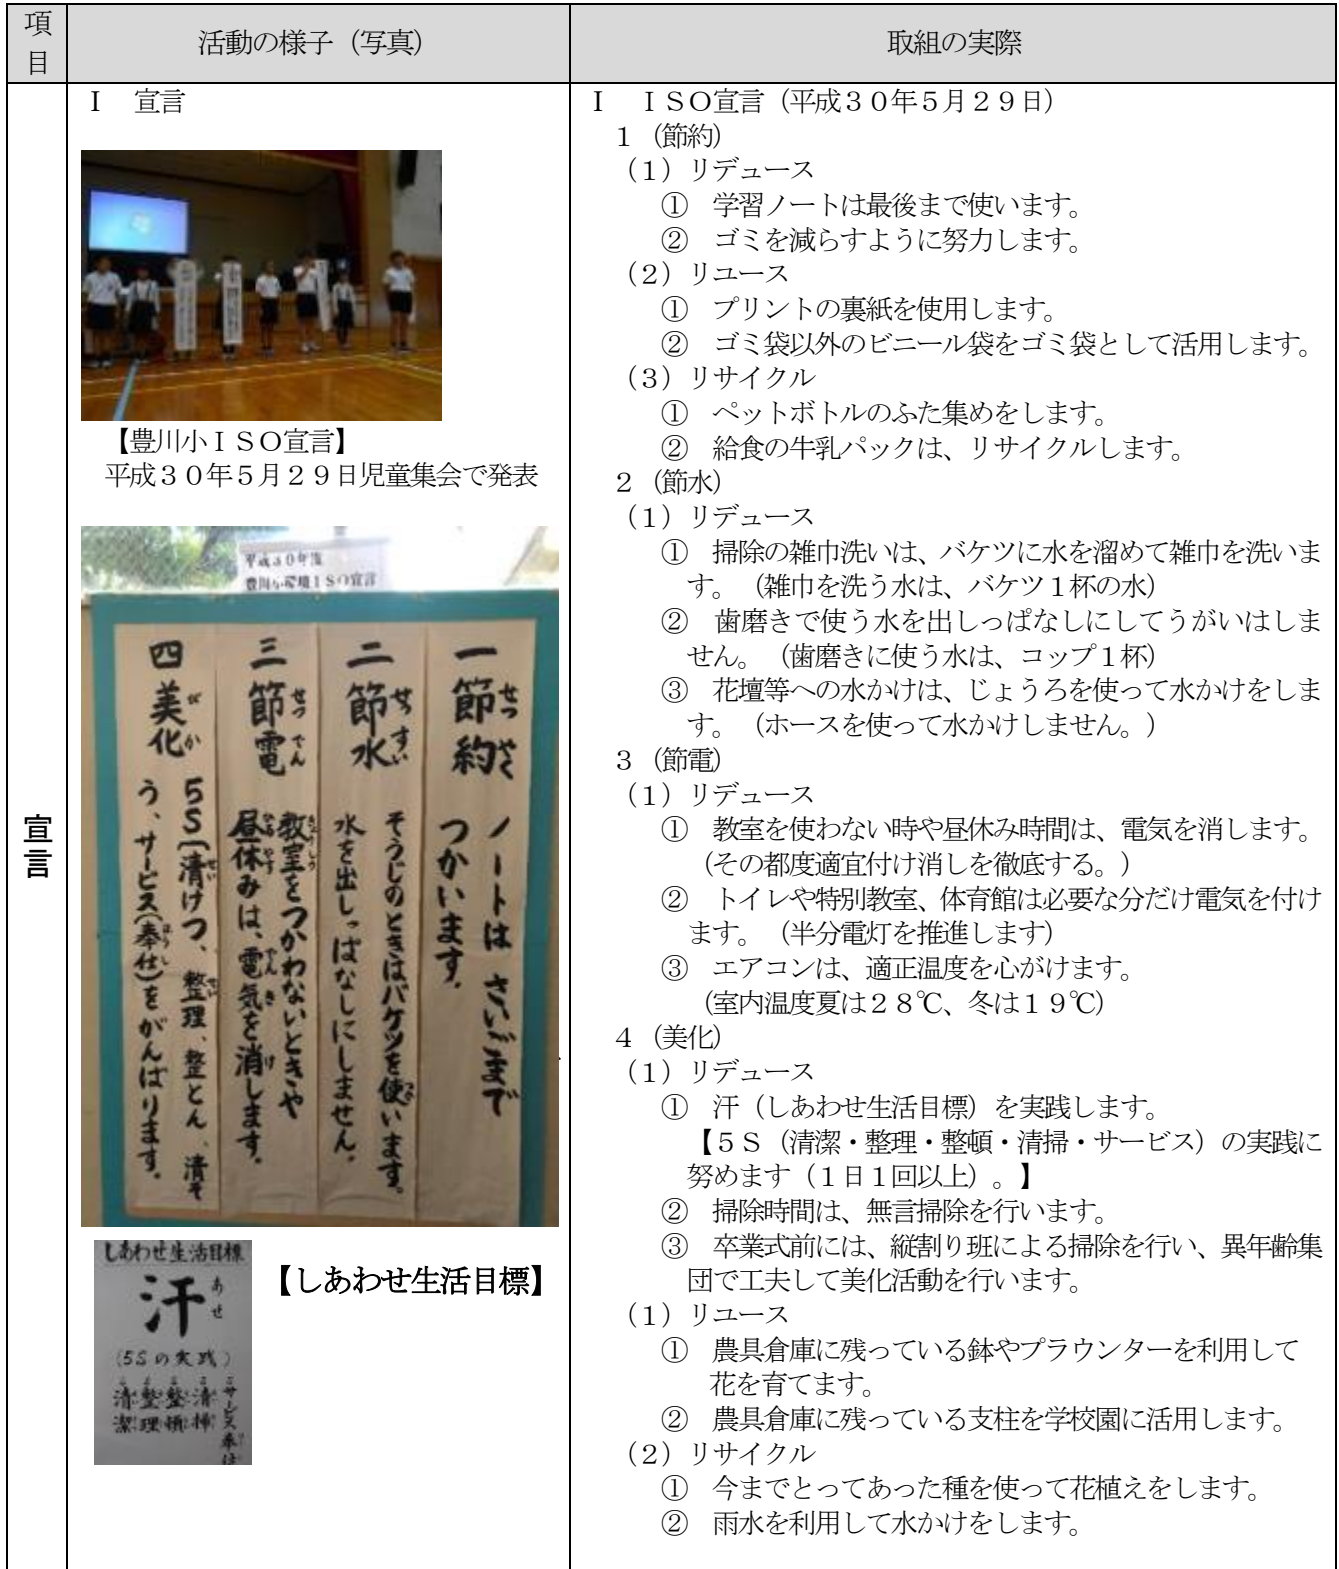 項目
活動の様子（写真）
取組の実際
宣言
Ⅰ　宣言
【豊川小ＩＳＯ宣言】
平成３０年５月２９日児童集会で発表
平成３０年度
豊川小環境ＩＳＯ宣言
一 節約 せつやく
ノートは さいごまで
つかいます。
二 節水 せっすい
そうじのときはバケツを使います。
水を出しっぱなしにしません。
三 節電 せつでん
教室をつかわないときや
昼休みは、電気を消します。
四 美化 びか
５Ｓ（清けつ、整理、整とん、清そ
う、サービス（奉仕）をがんばります。
しあわせ生活目標
汗 あせ
（５Ｓの実践）
清潔
整理
整頓
清掃
サービス奉仕
【しあわせ生活目標】
Ⅰ　ＩＳＯ宣言（平成３０年５月２９日）
１（節約）
（１）リデュース
①　学習ノートは最後まで使います。
②　ゴミを減らすように努力します。
（２）リユース
①　プリントの裏紙を使用します。
②　ゴミ袋以外のビニール袋をゴミ袋として活用します。
（３）リサイクル
①　ペットボトルのふた集めをします。
②　給食の牛乳パックは、リサイクルします。
２（節水）
（１）リデュース
①　掃除の雑巾洗いは、バケツに水を溜めて雑巾を洗いま
す。（雑巾を洗う水は、バケツ１杯の水）
②　歯磨きで使う水を出しっぱなしにしてうがいはしま
せん。（歯磨きに使う水は、コップ１杯）
③　花壇等への水かけは、じょうろを使って水かけをしま
す。（ホースを使って水かけしません。）
３（節電）
（１）リデュース
①　教室を使わない時や昼休み時間は、電気を消します。
（その都度適宜付け消しを徹底する。）
②　トイレや特別教室、体育館は必要な分だけ電気を付け
ます。（半分電灯を推進します）
③　エアコンは、適正温度を心がけます。
（室内温度夏は２８℃、冬は１９℃）
４（美化）
（１）リデュース
①　汗（しあわせ生活目標）を実践します。
【５Ｓ（清潔・整理・整頓・清掃・サービス）の実践に
努めます（１日１回以上）。】
②　掃除時間は、無言掃除を行います。
③　卒業式前には、縦割り班による掃除を行い、異年齢集
団で工夫して美化活動を行います。
（１）リユース
①　農具倉庫に残っている鉢やプラウンターを利用して
花を育てます。
②　農具倉庫に残っている支柱を学校園に活用します。
（２）リサイクル
①　今までとってあった種を使って花植えをします。
②　雨水を利用して水かけをします。